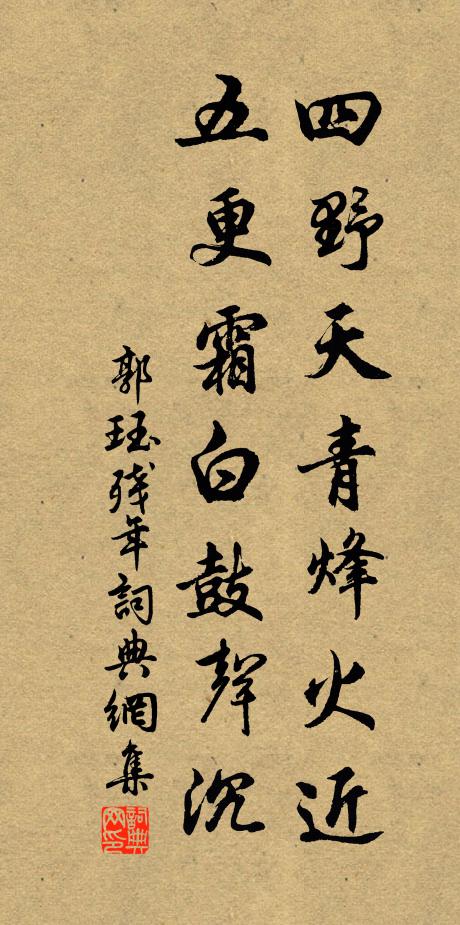 四野天青烽火近
五更霜白鼓聲沉
郭珏残年詞典網集
詞典网印